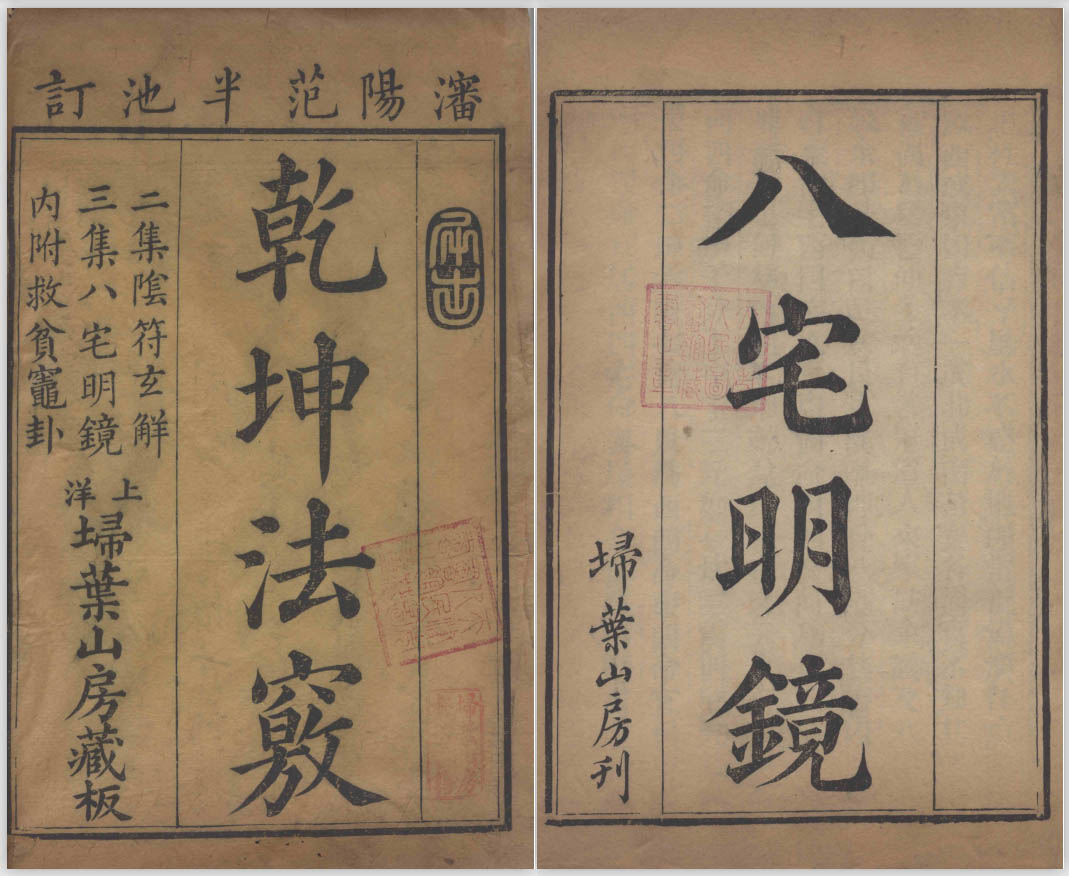 瀋陽范半池訂
乾坤法竅
二集陰符玄解
三集八宅明鏡
內附救貧竈卦
上洋
埽葉山房藏板
八宅明鏡
埽葉山房刊